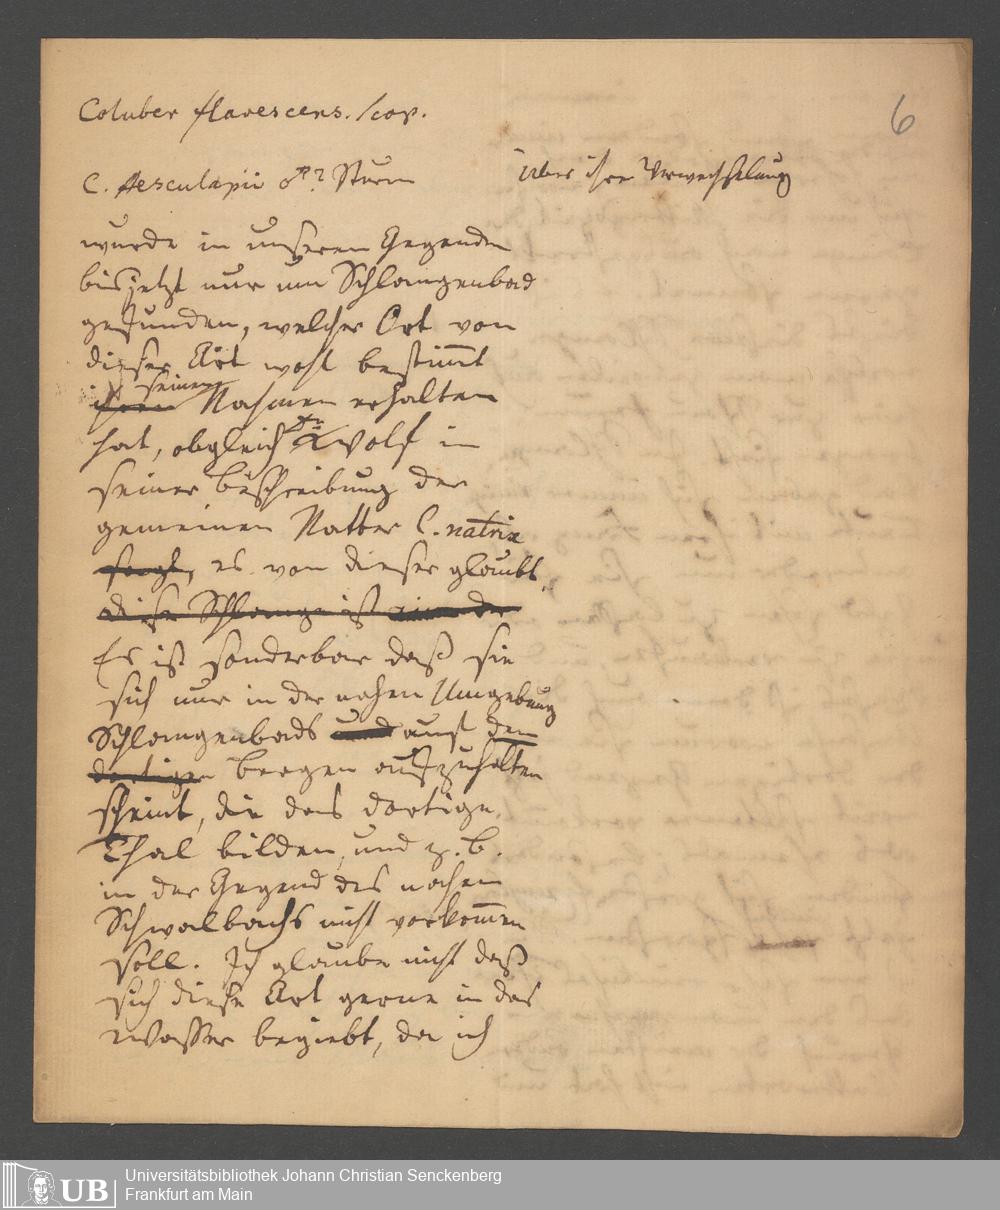 Coluber flavescens. Scop.
6
C. Aesculapii Sturm
über ihre Verwechselung
wurde in unseren Gegenden
bis jetzt nur um Schlangenbad
gefunden, welcher Ort von
dieser Art wohl bestimmt
ihren seinen Nahmen erhalten
hat, obgleich Wolf in
seiner Beschreibung der
gemeinen Natter C. natrix
sagt, es von dieser glaubt.
diese Schlange ist eine der
Es ist sonderbar daß sie
sich nur in der nahen Umgebung
Schlangenbads und auf den
dortigen Bergen aufzuhalten
scheint, die das dortige
Thal bilden, und z. B.
in der Gegend des nahen
Schwalbachs nicht vorkommen
soll. Ich glaube nicht daß
sich diese Art gerne in das
Wasser begiebt, da ich
UB
Universitätsbibliothek Johann Christian Senckenberg
Frankfurt am Main